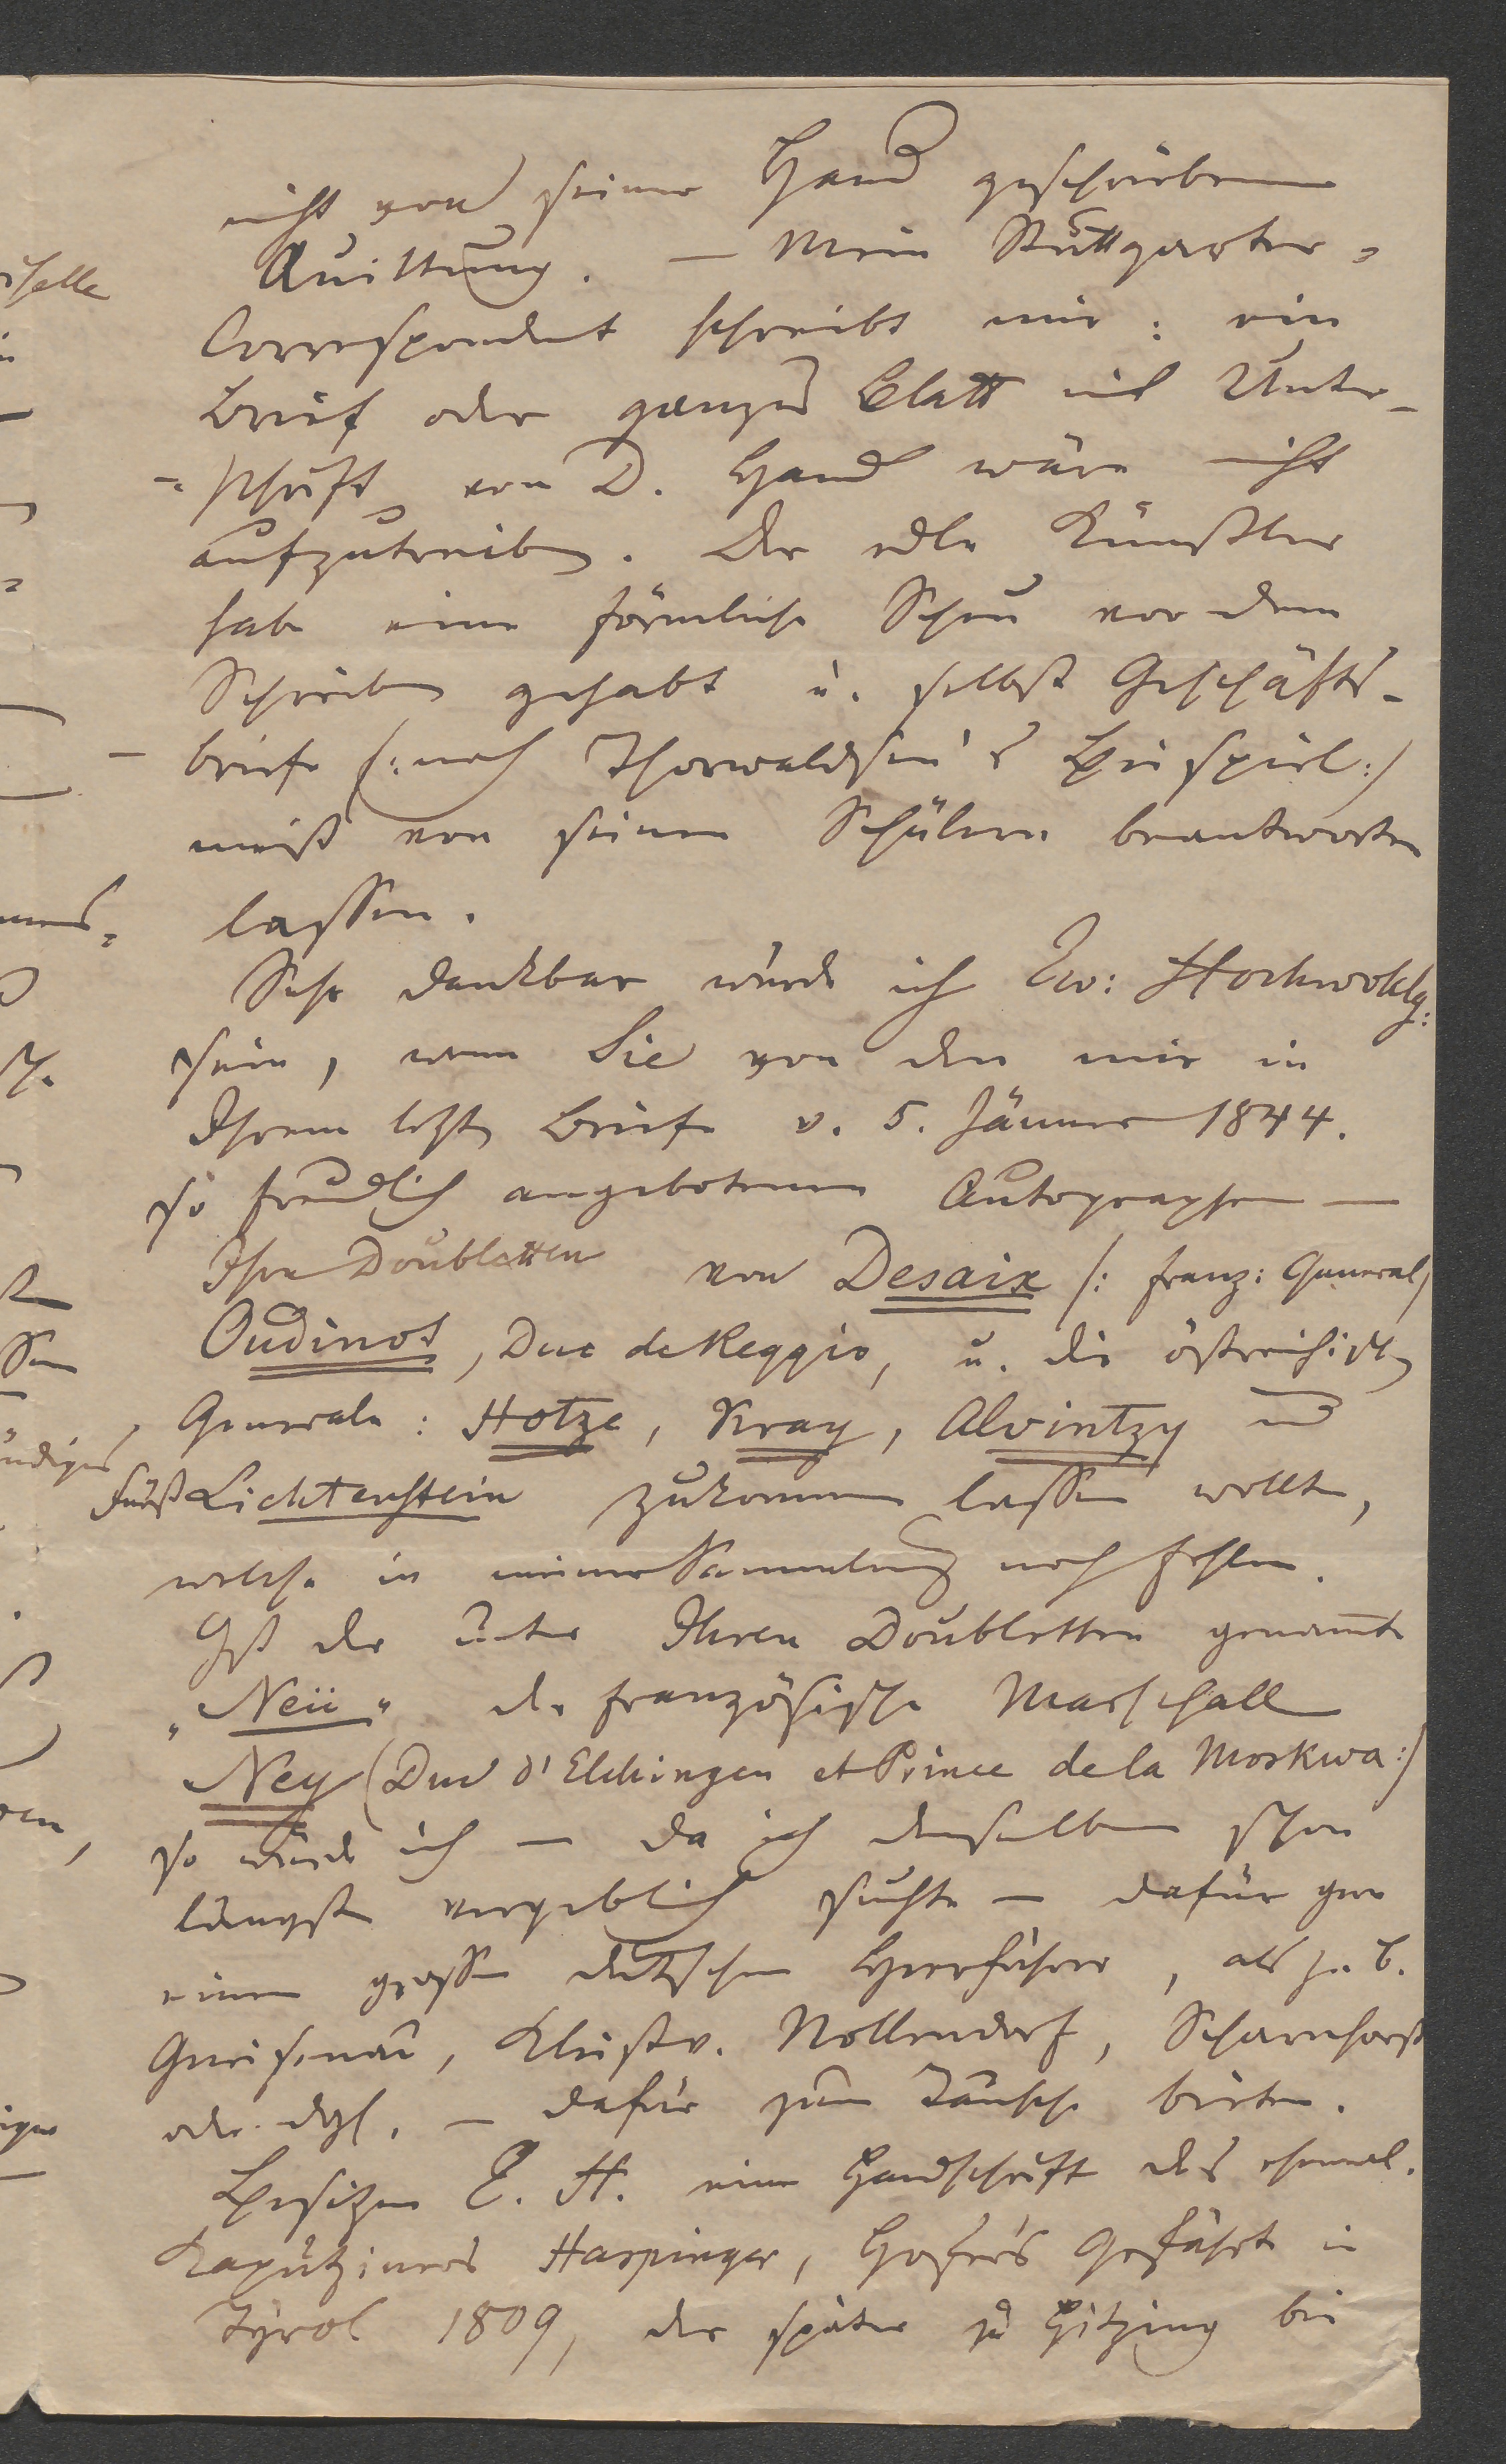 nicht von seiner Hand geschriebene
Quittung. — Mein Stuttgarter-
Correspondent schreibt mir: ein
Brief oder ganzes Blatt mit Unter-
-schrift von D. Hand wäre nicht
aufzutreiben. Der edle Künstler
habe eine förmliche Scheu vor dem
Schreiben gehabt u. selbst Geschäfts-
- briefe (: nach Thorwaldsen's Beispiel :)
meist von seinen Schülern beantworten
lassen.
Sehr dankbar würde ich Ew: Hochwohlg:
sein, wenn Sie von den mir in
Ihrem letzten Briefe v. 5. Jänner 1844.
so freundlich angebotenen Autographen —
Ihre Doubletten von Desaix /: franz: General/
Oudinot, Duc de Reggio, u. die östreichischen
Generale: Hotze, Kray, Alvintzy und
Fürst Lichtenstein zukommen lassen wollten,
welche in meiner Sammlung noch fehlen.
Ist der unter Ihren Doubletten genannte
„Neii“ der französische Marschall
Ney (Duc d'Elchingen et Prince de la Moskwa :)
so würde ich — da ich denselben schon
längst vergeblich suchte — dafür gern
einen grossen deutschen Heerführer, als z. B.
Gneisenau, Kleist v. Nollendorf, Scharnhorst
oder dgl. — dafür zum Tausche bieten.
Besitzen E. H. eine Handschrift des ehemal.
Kapuziners Haspinger, Hofer's Gefährte in
Tyrol 1809, der später zu Hitzing bei